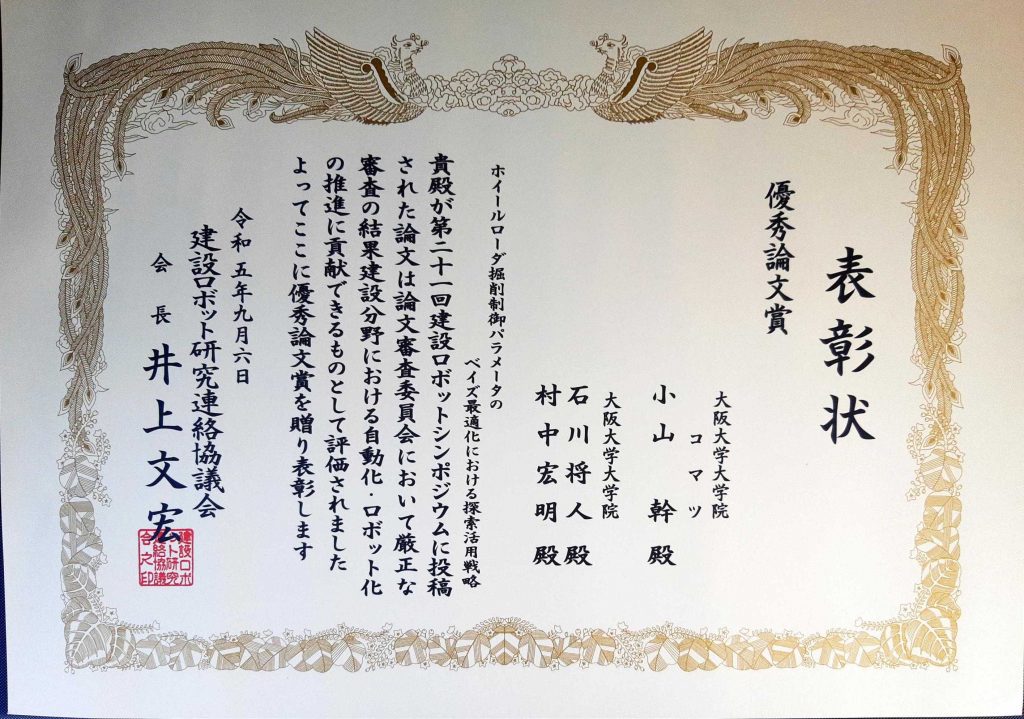 表彰状
優秀論文賞
大阪大学大学院
コマツ
小山 幹 殿
大阪大学大学院
石川将人 殿
村中宏明 殿
ホイールローダ掘削制御パラメータの
ベイズ最適化における探索活用戦略
貴殿が第二十一回建設ロボットシンポジウムに投稿
された論文は論文審査委員会において厳正な
審査の結果建設分野における自動化・ロボット化
の推進に貢献できるものとして評価されました
よってここに優秀論文賞を贈り表彰します
令和五年九月六日
建設ロボット研究連絡協議会
会長 井上文宏
建設ロボ
ット研究
連絡協議
会之印